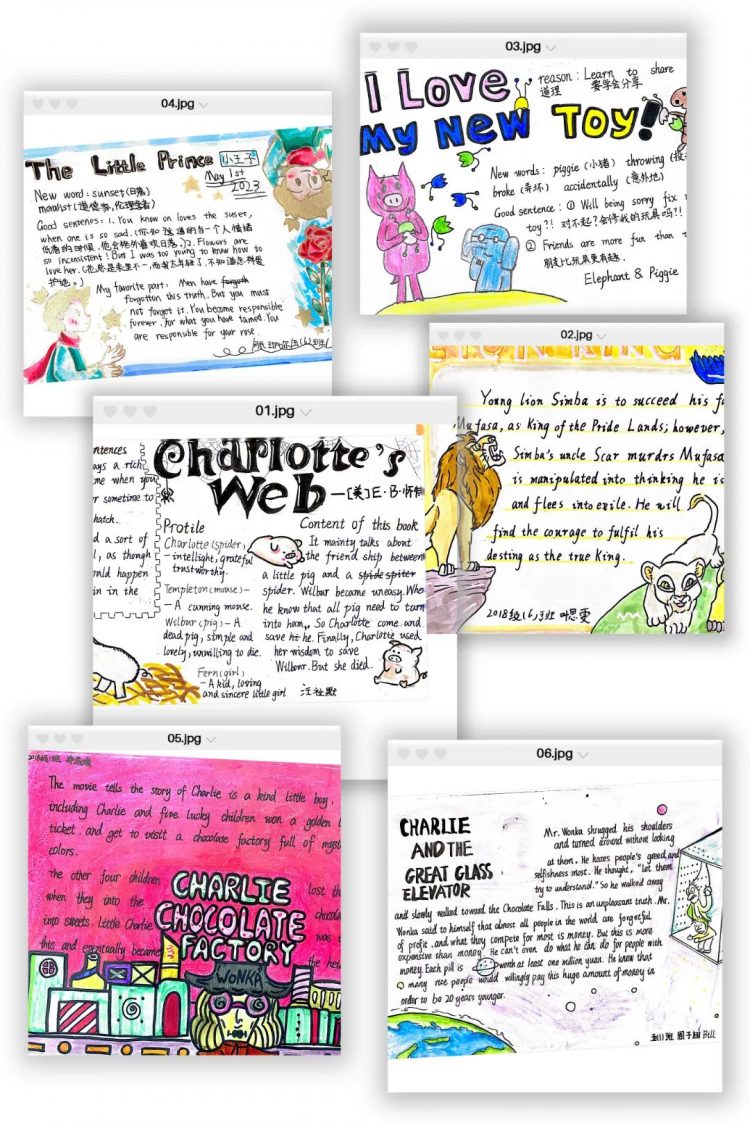 03.jpg
I Love
My New Toy!
reason: Learn to share
道理 要学会分享
New words: piggie (小猪) throwing
broke (弄坏) accidentally (意外地)
Good sentence: ① Will being sorry fix
toy?! 对不起?会修我的玩具吗?!
② Friends are more fun than
朋友比玩具更有趣.
Elephant & Piggie
04.jpg
The Little Prince 小王子
May 1st
2023
New word: sunset (日落)
moralist (道德家,伦理学者)
Good sentenses: 1. You know on loves the suset,
when one is so sad. (你知道的当一个人情绪
低落的时候,他会格外喜欢日落。)2. Flowers are
so inconsistent! But I was too young to know how to
love her.
护她。)
My favorite part: Men have forgoth
forgotton this truth. But you must
not forget it. You become responsible
forever, for what you have tamed. You
are responsible for your rose.
02.jpg
Young lion Simba is to succeed his
Mufasa, as King of the Pride Lands; however,
Simba's uncle Scar murdrs Mufasa
is manipulated into thinking he is
and flees into exile. He will
find the courage to fulfil his
desting as the true King.
2018级(6)班 叶思雯
01.jpg
Charlotte's
Web
—[美]E·B·怀特
entences
ays a rich
me when you
r sometime to
hatch.
d a sort of
l, as though
uld happen
in in the
Protile
Charlotte (spider)
— intellight, grateful
trustworthy.
Templeton (mouse)-
— A cunning mouse.
Wilbur (pig) — A
dead pig, simple and
lovely, unwilling to die.
Fern(girl)
— A kid, loving
and sincere little girl
Content of this book
It mainty talks about
the friend ship between
a little pig and a spide spiter
spider. Wilbur become uneasy. When
he know that all pig need to turn
into ham,. So Charlotte come and
save him. Finally, Charlotte used
her wisdom to save
Wilbour. But she died.
05.jpg
The movie tells the story of Charlie is a kind little boy,
including Charlie and five lucky children won a golden
ticket, and get to visit a chocolate factory full of
colors.
The other four children lost
when they into the chocola
into sweets. Little Charlie was
this and eventually became the hei
CHARLIE
CHOCOLATE
FACTORY
WONKA
06.jpg
CHARLIE
AND THE
GREAT GLASS
ELEVATOR
Mr. Wonka shrugged his shoulders
and turned around without looking
at them. He hates people's greed and
selfishness most. He thought, "Let them
try to understand." So he walked away
and slowly walked toward the Chocolate Falls. This is an unpleasant truth. Mr.
Wonka said to himself that almost all people in the world are forgetful
of profie, and what they compete for most is money. But this is more
expensive than money. He can't even do what he can do for people with
money. Each pill is worth at least one million yuan. He knew that
many rice people would willingly pay this huge amount of money in
order to be 20 years younger.
Bill